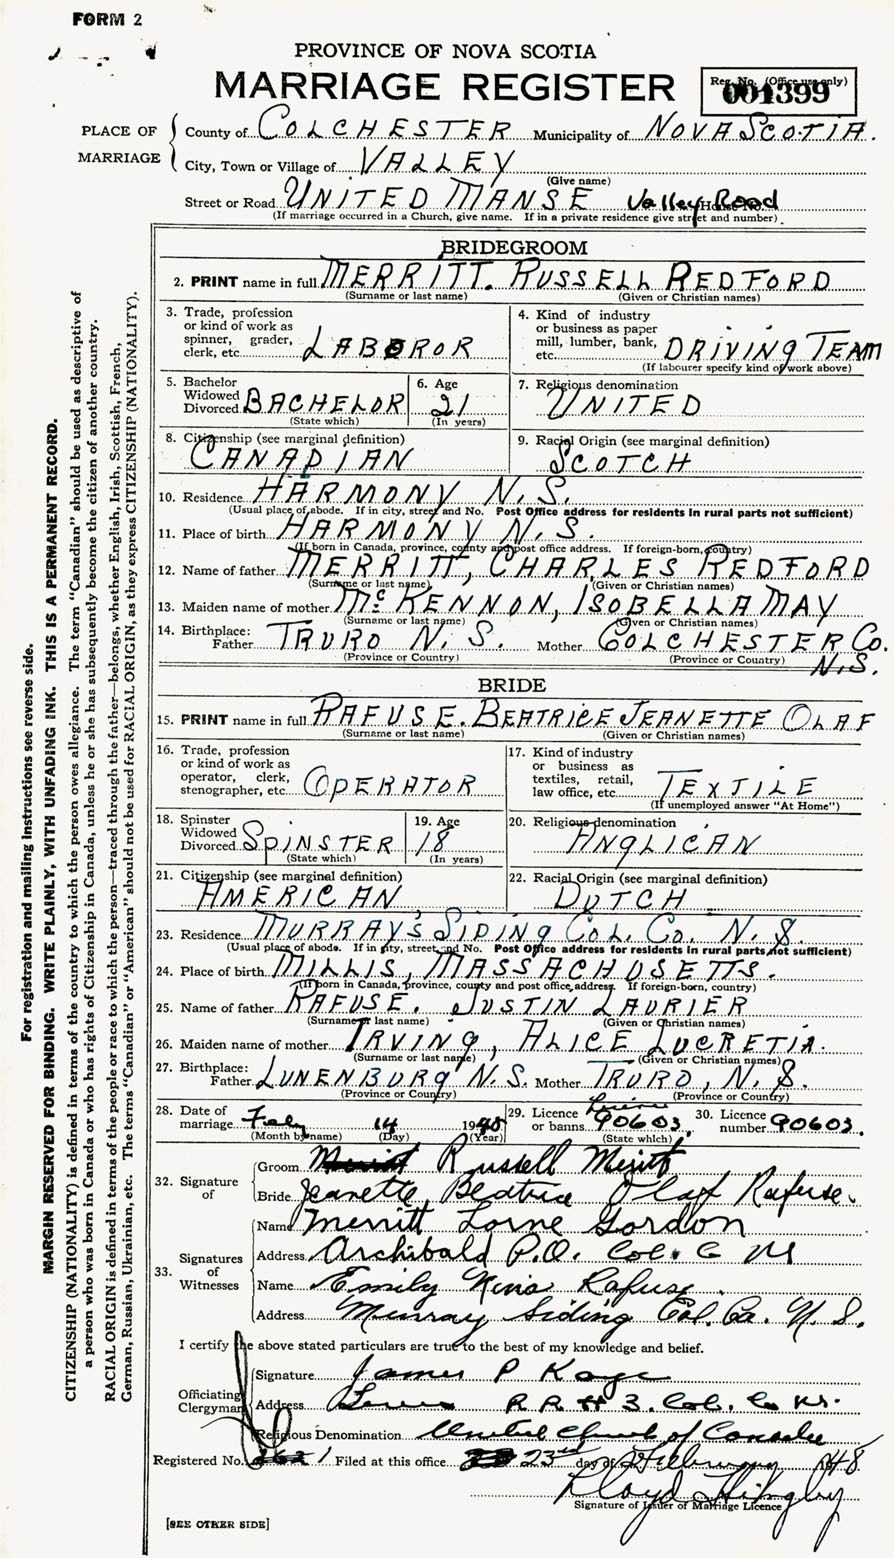 FORM 2
PROVINCE OF NOVA SCOTIA
MARRIAGE REGISTER
Reg. No. (Office use only)
001399
PLACE OF MARRIAGE
County of COLCHESTER Municipality of NOVA SCOTIA.
City, Town or Village of VALLEY
(Give name)
Street or Road UNITED MANSE Valley Road
(If marriage occurred in a Church, give name. If in a private residence give street and number)
BRIDEGROOM
2. PRINT name in full MERRITT. RUSSELL REDFORD
(Surname or last name) (Given or Christian names)
3. Trade, profession or kind of work as spinner, grader, clerk, etc. LABOROR
4. Kind of industry or business as paper mill, lumber, bank, etc. DRIVING TEAM
(If labourer specify kind of work above)
5. Bachelor Widowed Divorced BACHELOR
(State which)
6. Age 21
(In years)
7. Religious denomination UNITED
8. Citizenship (see marginal definition) CANADIAN
9. Racial Origin (see marginal definition) SCOTCH
10. Residence HARMONY N.S.
(Usual place of abode. If in city, street and No. Post Office address for residents in rural parts not sufficient)
11. Place of birth HARMONY N.S.
(If born in Canada, province, county and post office address. If foreign-born, country)
12. Name of father MERRITT, CHARLES REDFORD
(Surname or last name) (Given or Christian names)
13. Maiden name of mother McKENNON, ISOBELLA MAY
(Surname or last name) (Given or Christian names)
14. Birthplace: Father TRURO N.S. Mother COLCHESTER Co. N.S.
(Province or Country) (Province or Country)
BRIDE
15. PRINT name in full RAFUSE. BEATRICE JEANETTE OLAF
(Surname or last name) (Given or Christian names)
16. Trade, profession or kind of work as operator, clerk, stenographer, etc. OPERATOR
17. Kind of industry or business as textiles, retail, law office, etc. TEXTILE
(If unemployed answer "At Home")
18. Spinster Widowed Divorced SPINSTER
(State which)
19. Age 18
(In years)
20. Religious denomination ANGLICAN
21. Citizenship (see marginal definition) AMERICAN
22. Racial Origin (see marginal definition) DUTCH
23. Residence MURRAY'S SIDING COL. CO. N.S.
(Usual place of abode. If in city, street and No. Post Office address for residents in rural parts, not sufficient)
24. Place of birth MILLIS, MASSACHUSETTS.
(If born in Canada, province, county and post office address. If foreign-born, country)
25. Name of father RAFUSE. JUSTIN LAURIER
(Surname or last name) (Given or Christian names)
26. Maiden name of mother IRVING, ALICE LUCRETIA.
(Surname or last name) (Given or Christian names)
27. Birthplace: Father LUNENBURG N.S. Mother TRURO, N.S.
(Province or Country) (Province or Country)
28. Date of marriage Feb 14 1948
(Month by name) (Day) (Year)
29. Licence or banns 90603
(State which)
30. Licence number 90603.
32. Signature of
Groom Russell Merritt
Bride Jeanette Beatrice Olaf Rafuse.
33. Signatures of Witnesses
Name Merritt Lorne Gordon
Address Archibald P.O. Col. C
Name Emily Rafuse
Address Murray Siding Col. Co. N.S.
I certify the above stated particulars are true to the best of my knowledge and belief.
Officiating Clergyman
Signature James P Kaye
Address R R # 3. Col. Co NS.
Religious Denomination United Church of Canada
Registered No. 1 Filed at this office 23rd day of February 1948
Lloyd
Signature of Issuer of Marriage Licence
[SEE OTHER SIDE]
For registration and mailing instructions see reverse side.
MARGIN RESERVED FOR BINDING. WRITE PLAINLY, WITH UNFADING INK. THIS IS A PERMANENT RECORD.
CITIZENSHIP (NATIONALITY) is defined in terms of the country to which the person owes allegiance. The term "Canadian" should be used as descriptive of
a person who was born in Canada or who has rights of Citizenship in Canada, unless he or she has subsequently become the citizen of another country.
RACIAL ORIGIN is defined in terms of the people or race to which the person—traced through the father—belongs, whether English, Irish, Scottish, French,
German, Russian, Ukrainian, etc. The terms "Canadian" or "American" should not be used for RACIAL ORIGIN, as they express CITIZENSHIP (NATIONALITY).